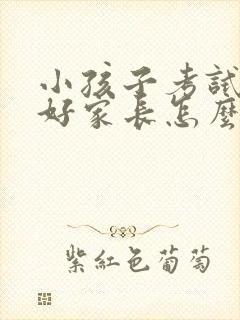 小孩子考試
好家長怎麼
紫紅色葡萄